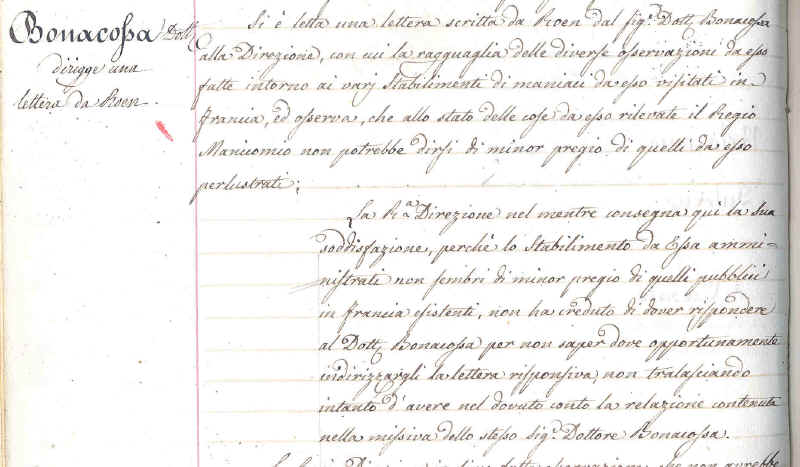 Bonacossa Dott.
dirigge una
lettera da Roen.
Si è letta una lettera scritta da Roen dal sig.r Dott. Bonacossa
alla Direzione, con cui la ragguaglia delle diverse osservazioni da esso
fatte intorno ai varj Stabilimenti di maniaci da esso visitati in
Francia, ed osserva, che allo stato delle cose da esso rilevate il Regio
Manicomio non potrebbe dirsi di minor pregio di quelli da esso
perlustrati;
La R.a Direzione nel mentre consegna qui la sua
soddisfazione, perchè lo Stabilimento da Essa ammi-
nistrati non sembri di minor pregio di quelli pubblici
in Francia esistenti, non ha creduto di dover rispondere
al Dott. Bonacossa per non saper dove opportunamente
indirizzargli la lettera risponsiva, non tralasciando
intanto d'avere nel dovuto conto la relazione contenuta
nella missiva dello stesso Sig.r Dottore Bonacossa.